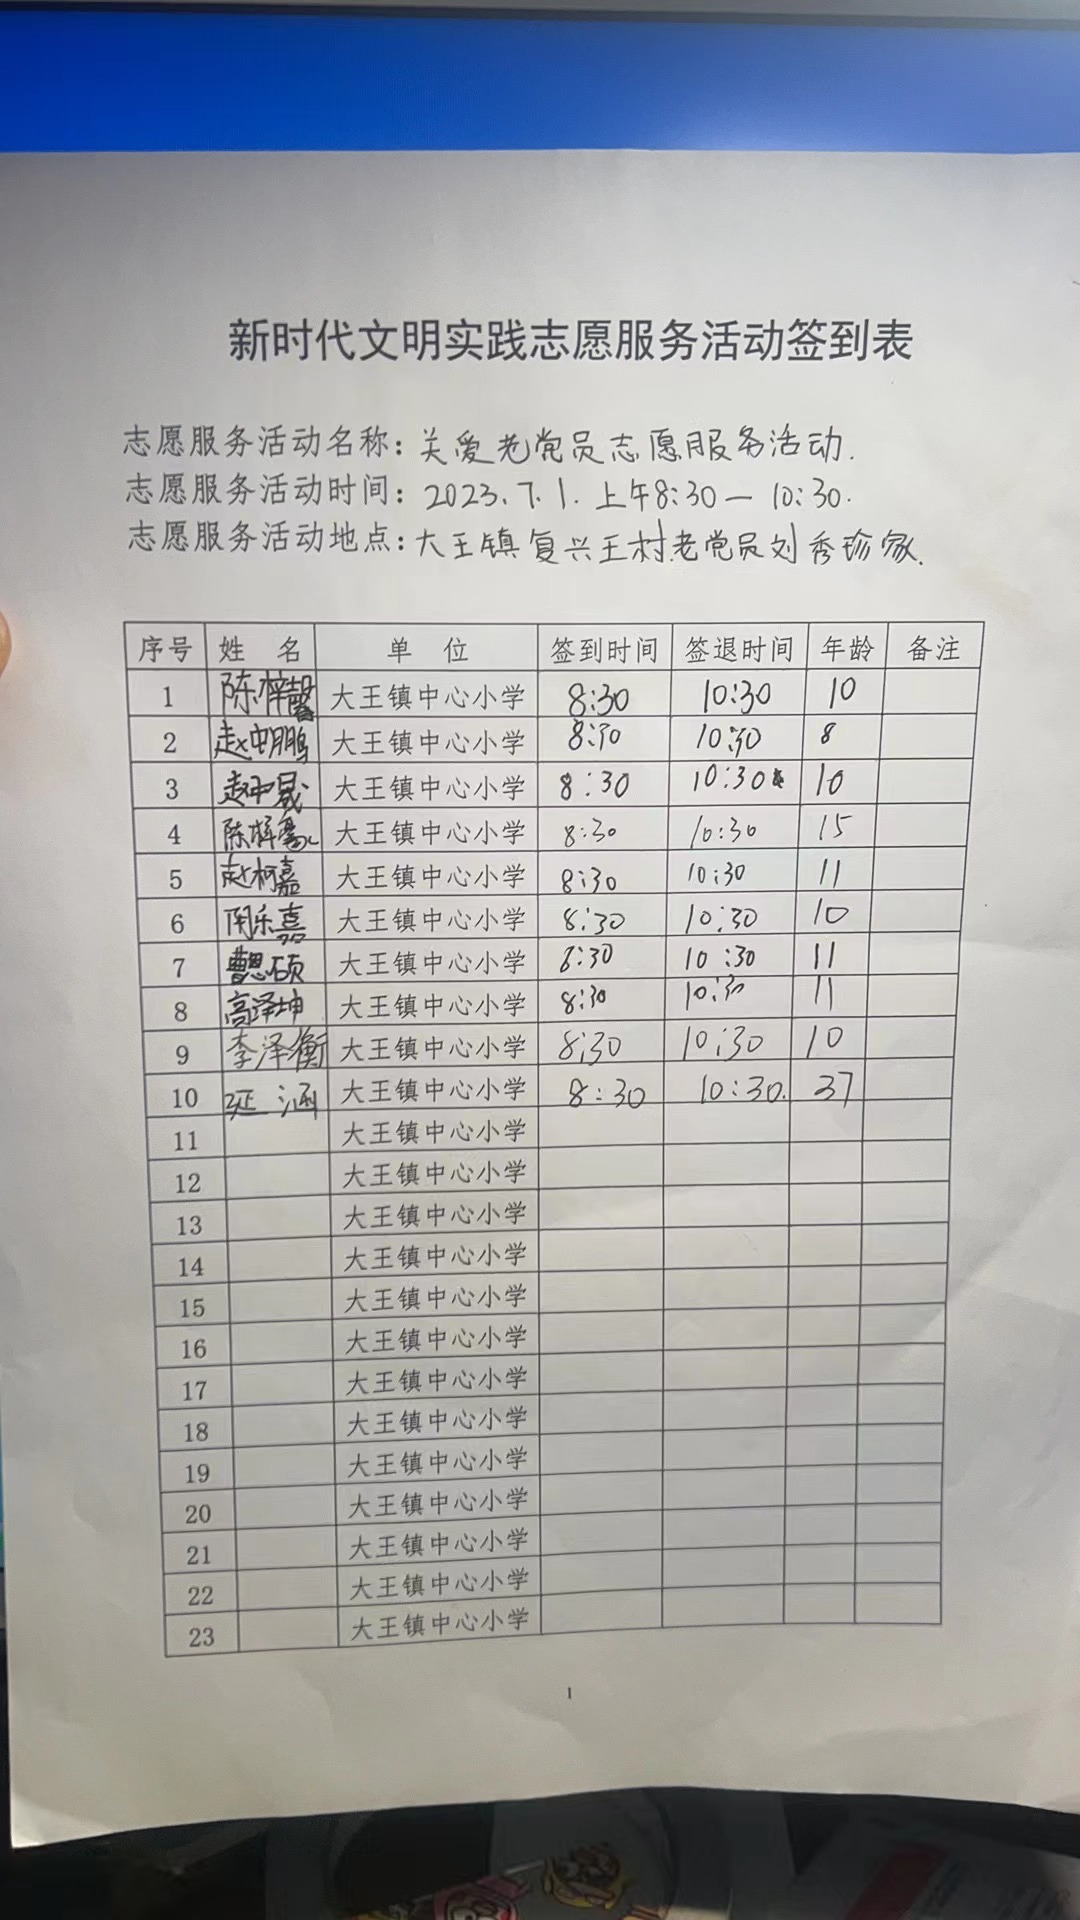 新时代文明实践志愿服务活动签到表
志愿服务活动名称：关爱老党员志愿服务活动.
志愿服务活动时间：2023.7.1.上午8:30—10:30.
志愿服务活动地点：大王镇复兴王村老党员刘秀珍家.
序号 姓 名 单 位 签到时间 签退时间 年龄 备注
1 陈梓馨 大王镇中心小学 8:30 10:30 10
2 赵中鹏 大王镇中心小学 8:30 10:30 8
3 赵中晟 大王镇中心小学 8:30 10:30 10
4 陈梓 大王镇中心小学 8:30 10:30 15
5 赵柯嘉 大王镇中心小学 8:30 10:30 11
6 乐嘉 大王镇中心小学 8:30 10:30 10
7 曹思硕 大王镇中心小学 8:30 10:30 11
8 高泽坤 大王镇中心小学 8:30 10:30 11
9 李泽衡 大王镇中心小学 8:30 10:30 10
10 延 涵 大王镇中心小学 8:30 10:30. 37
11 大王镇中心小学
12 大王镇中心小学
13 大王镇中心小学
14 大王镇中心小学
15 大王镇中心小学
16 大王镇中心小学
17 大王镇中心小学
18 大王镇中心小学
19 大王镇中心小学
20 大王镇中心小学
21 大王镇中心小学
22 大王镇中心小学
23 大王镇中心小学
1